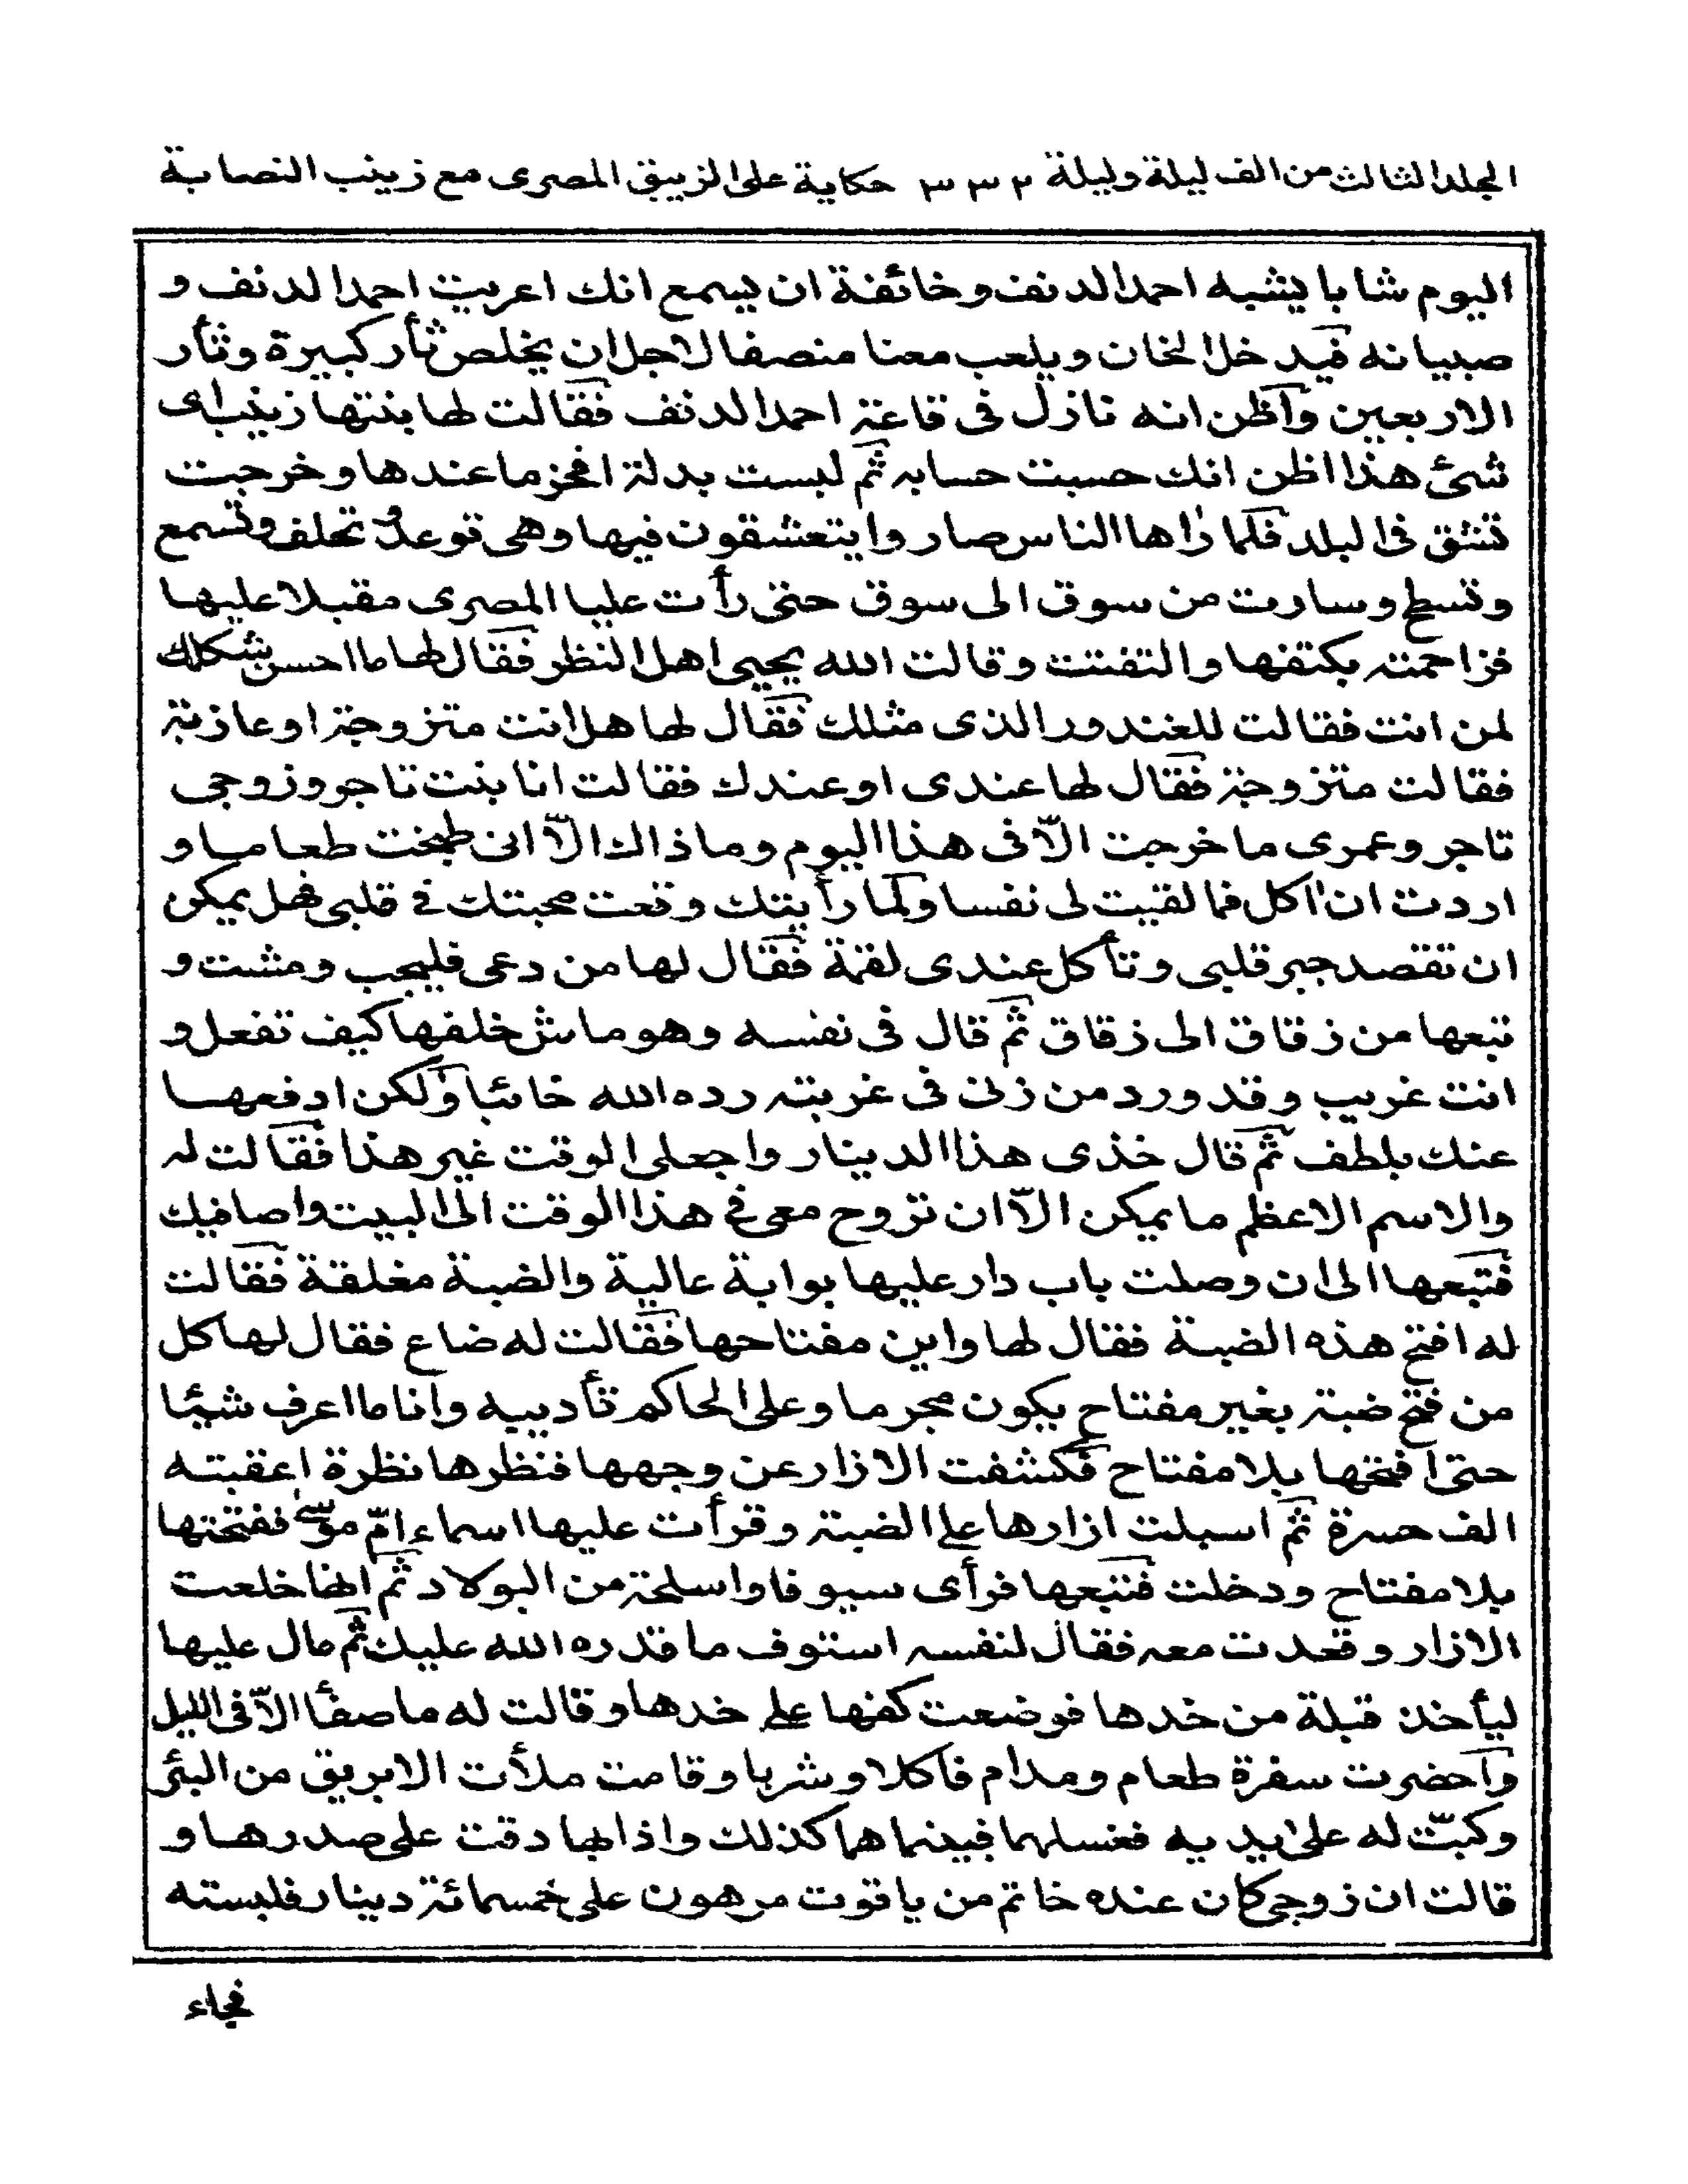 المجلد الثالث من الف ليلة وليلة ٢٣٣ حكاية على الزيبق المصرى مع زينب النصابة
اليوم شابا يشبه احمد الدنف وخائفة ان يسمع انك اعريت احمد الدنف و
صبيانه فيدخل الخان ويلعب معنا منصفا لاجل ان يخلص ثأر كبيرة وثأر
الاربعين وأظن انه نازل فى قاعة احمد الدنف فقالت لها بنتها زينب اى
شئ هذا اظن انك حسبت حسابه ثم لبست بدلة افخر ما عندها وخرجت
تشق فى البلد فلما رٰاها الناس صاروا يتعشقون فيها وهى توعد وتحلف وتسمع
وتسطح وسارت من سوق الى سوق حتى رأت عليا المصرى مقبلا عليها
فزاحمته بكتفها والتفتت وقالت الله يحيى اهل النظر فقال لها ما احسن شكلك
لمن انت فقالت للغندور الذى مثلك فقال لها هل انت متزوجة او عازبة
فقالت متزوجة فقال لها عندى او عندك فقالت انا بنت تاجر وزوجى
تاجر وعمرى ما خرجت الّا فى هذا اليوم وما ذاك الّا انى طبخت طعاما و
اردت ان اٰكل فما لقيت لى نفسا ولما رأيتك وقعت محبتك فى قلبى فهل يمكن
ان تقصد جبر قلبى وتأكل عندى لقمة فقال لها من دعى فليجب ومشت و
تبعها من زقاق الى زقاق ثم قال فى نفسه وهو ماش خلفها كيف تفعل و
انت غريب وقد ورد من زنى فى غربته رده الله خائبا ولكن ادفعها
عنك بلطف ثم قال خذى هذا الدينار واجعلى الوقت غير هذا فقالت له
والاسم الاعظم ما يمكن الّا ان تروح معى فى هذا الوقت الى البيت واصافيك
فتبعها الى ان وصلت باب دار عليها بوابة عالية والضبة مغلقة فقالت
له افتح هذه الضبة فقال لها واين مفتاحها فقالت له ضاع فقال لها كل
من فتح ضبة بغير مفتاح يكون مجرما وعلى الحاكم تأديبه وانا ما اعرف شيئا
حتى افتحها بلا مفتاح فكشفت الازار عن وجهها فنظرها نظرة اعقبته
الف حسرة ثم اسبلت ازارها على الضبة وقرأت عليها اسماء امّ موسى ففتحتها
بلا مفتاح ودخلت فتبعها فرأى سيوفا واسلحة من البولاد ثم انها خلعت
الازار وقعدت معه فقال لنفسه استوف ما قدره الله عليك ثم مال عليها
ليأخذ قبلة من خدها فوضعت كفها على خدها وقالت له ما صفأ الّا فى الليل
وأحضرت سفرة طعام ومدام فاكلا وشربا وقامت ملأت الابريق من البئر
وكبّت له على يديه فغسلهما فبينما هما كذلك واذا بها دقت على صدرها و
قالت ان زوجى كان عنده خاتم من ياقوت مرهون على خمسمائة دينار فلبسته
فجاء